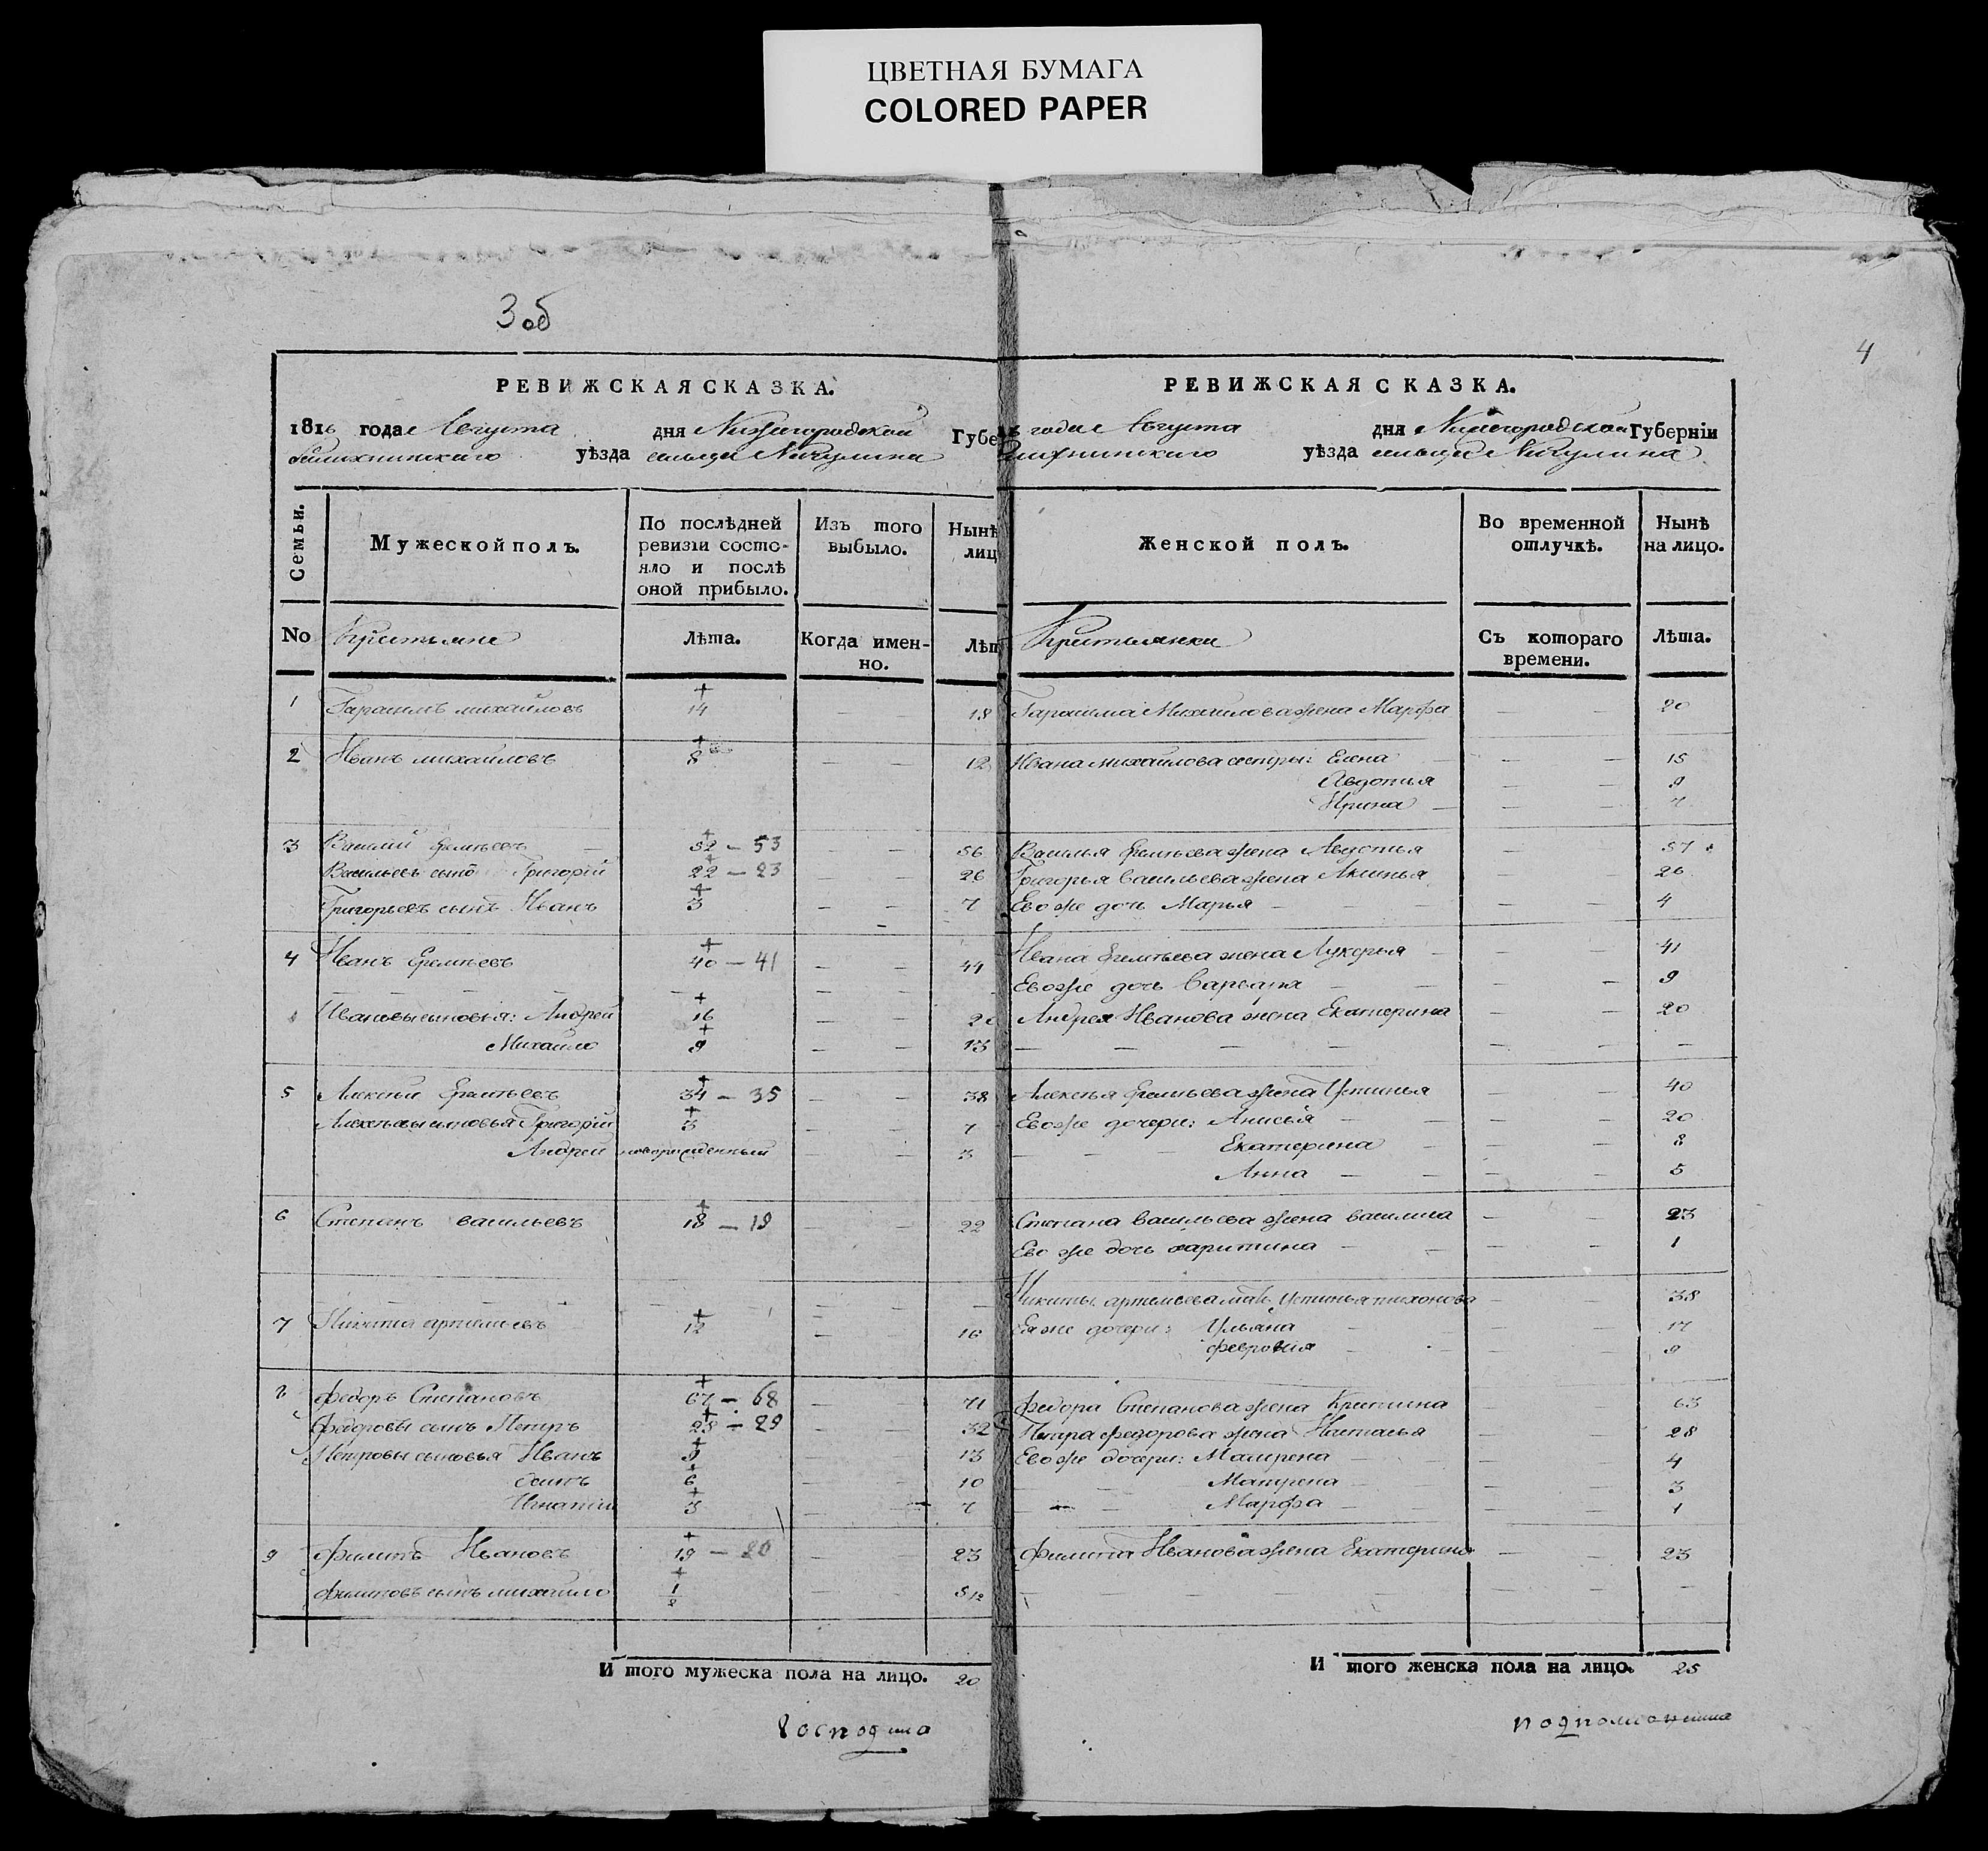 ЦВЕТНАЯ БУМАГА
COLORED PAPER
3 об
4
РЕВИЖСКАЯ СКАЗКА.
1816 года Августа дня Нижегородской Губе
уѣзда сельца Никулина
Семьи.
Мужеской полъ.
По послѣдней ревизіи состояло и послѣ оной прибыло.
Изъ того выбыло.
Нынѣ лиц
No
Крестьяне
Лѣта.
Когда именно.
Лѣт
1 Гарасимъ михайловъ 14 — — 18
2 Иванъ михайловъ 8 — — 12
3 Василий Еремѣевъ 52 — 53 — — 56
Васильевъ сынъ Григорій 22 — 23 — — 26
Григорьевъ сынъ Иванъ 3 — — 7
4 Иванъ Еремѣевъ 40 — 41 — — 44
Ивановы сыновья: Андрей 16 — — 20
Михайло 9 — — 13
5 Алексѣй Еремѣевъ 34 — 35 — — 38
Алексѣевы сыновья Григорій 3 — — 7
Андрей новорожденный — — 3
6 Степанъ васильевъ 18 — 19 — — 22
7 Никита артемьевъ 12 — — 16
8 Федоръ Степановъ 67 — 68 — — 71
Федоровы сынъ Петръ 28 — 29 — — 32
Петровы сыновья Иванъ 9 — — 13
Осипъ 6 — — 10
Игнатій 3 — — 7
9 Филипъ Ивановъ 19 — 20 — 23
Филиповъ сынъ михайло 1/2 — 5
И того мужеска пола на лицо. 20
Господина
РЕВИЖСКАЯ СКАЗКА.
года Августа дня Нижегородской Губерніи
уѣзда сельца Никулина
Женской полъ.
Во временной отлучкѣ.
Нынѣ на лицо.
Крестьянки
Съ котораго времени.
Лѣта.
Гарасима Михайлова жена Марфа — — 20
Ивана михайлова сестры: Елена — — 15
Авдотья — — 9
Ирина — — 7
Василья Еремѣева жена Авдотья — — 57
Григорья васильева жена Аксинья — — 26
Ево же дочь Марья — — 4
Ивана Еремѣева жена Лукерья — — 41
Ево же дочь Варвара — — 9
Андрея Иванова жена Екатерина — — 20
Алексѣя Еремѣева жена Устинья — — 40
Ево же дочери: Анисья — — 20
Екатерина — — 8
Анна — — 5
Степана васильева жена василиса — — 23
Ево же дочь харитина — — 1
Никиты артемьева мать Устинья тихонова — — 38
Ея же дочери: Ульяна — — 17
Феврония — — 9
Федора Степанова жена Кристина — 63
Петра Федорова жена Настасья — — 28
Ево же дочери: Матрена — — 4
Матрена — — 3
Марфа — — 1
Филипа Иванова жена Екатерина — — 23
И того женска пола на лицо. 25